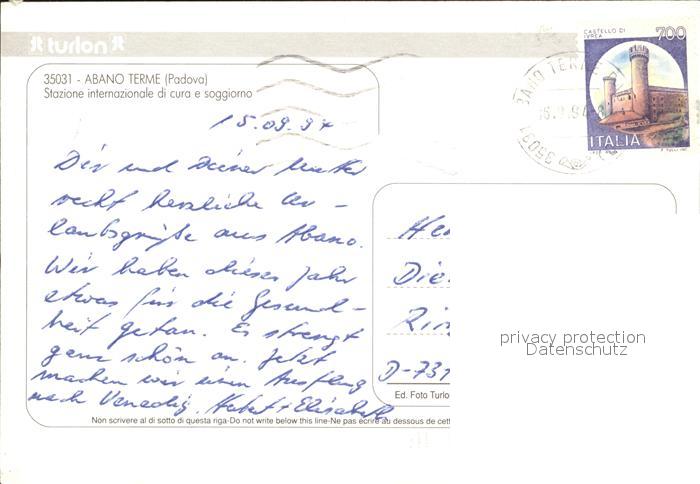 turlon
CASTELLO DI
IVREA
700
ITALIA
35031 - ABANO TERME (Padova)
Stazione internazionale di cura e soggiorno
15.09.94
Dir und Deiner Mutter
recht herzliche Ur-
laubsgrüße aus Abano.
Wir haben dieses Jahr
etwas für die Gesund-
heit getan. Es strengt
ganz schön an. Jetzt
machen wir einen Ausflug
nach Venedig. Hubert + Elisabeth
Die
Rin
D-731
privacy protection
Datenschutz
Ed. Foto Turlo
Non scrivere al di sotto di questa riga-Do not write below this line-Ne pas écrire au dessous de cett